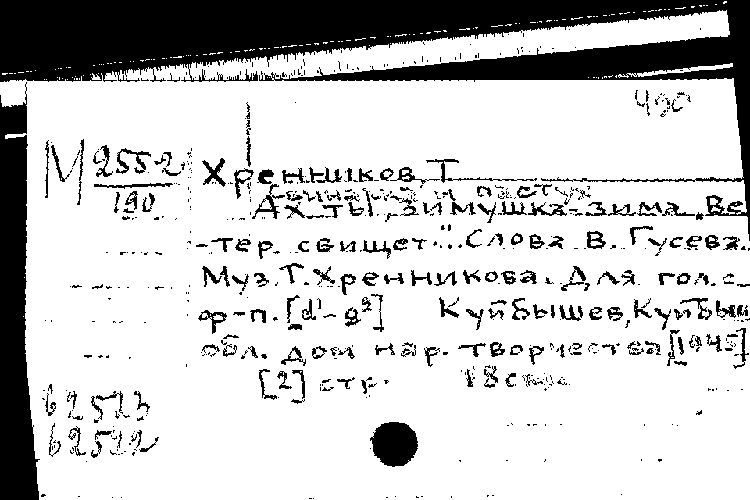 490
М 2552
190
Хренников, Т
Свинарка и пастух
Ах ты, зимушка-зима „Ве
-тер свищет."..Слова В. Гусева.
Муз.Т.Хренникова. Для гол. с
ф-п. [d'- g²] Куйбышев, Куйбыш
обл. дом нар. творчества [1945]
[2] стр. 18 см
62523
62522